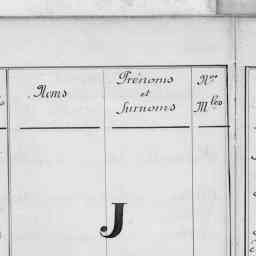 Noms
Prénoms
et
Surnoms
Nos
Mles
J